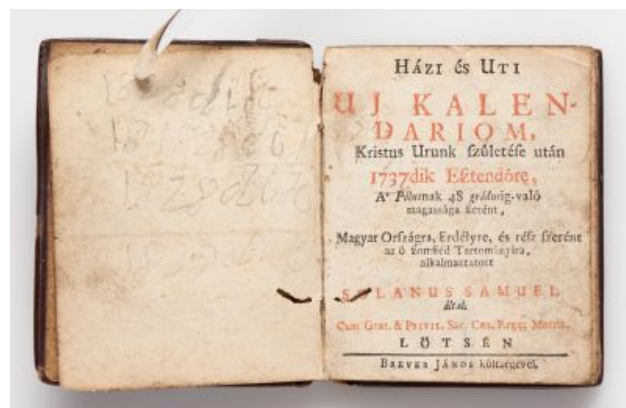 HÁZI és UTI
UJ KALEN-
DARIOM,
Kristus Urunk születése után
1737dik Esztendőre,
A' Pólusnak 48 grádusig-való
magassága szerént,
Magyar Országra, Erdélyre, és rész szerént
az ő szomszéd Tartományira,
alkalmaztatott
SOLANUS SAMUEL
által.
Cum Grat. & PRIVIL. Sac. Cæs. Regiæ
LŐTSÉN
BREVER JÁNOS költségével.